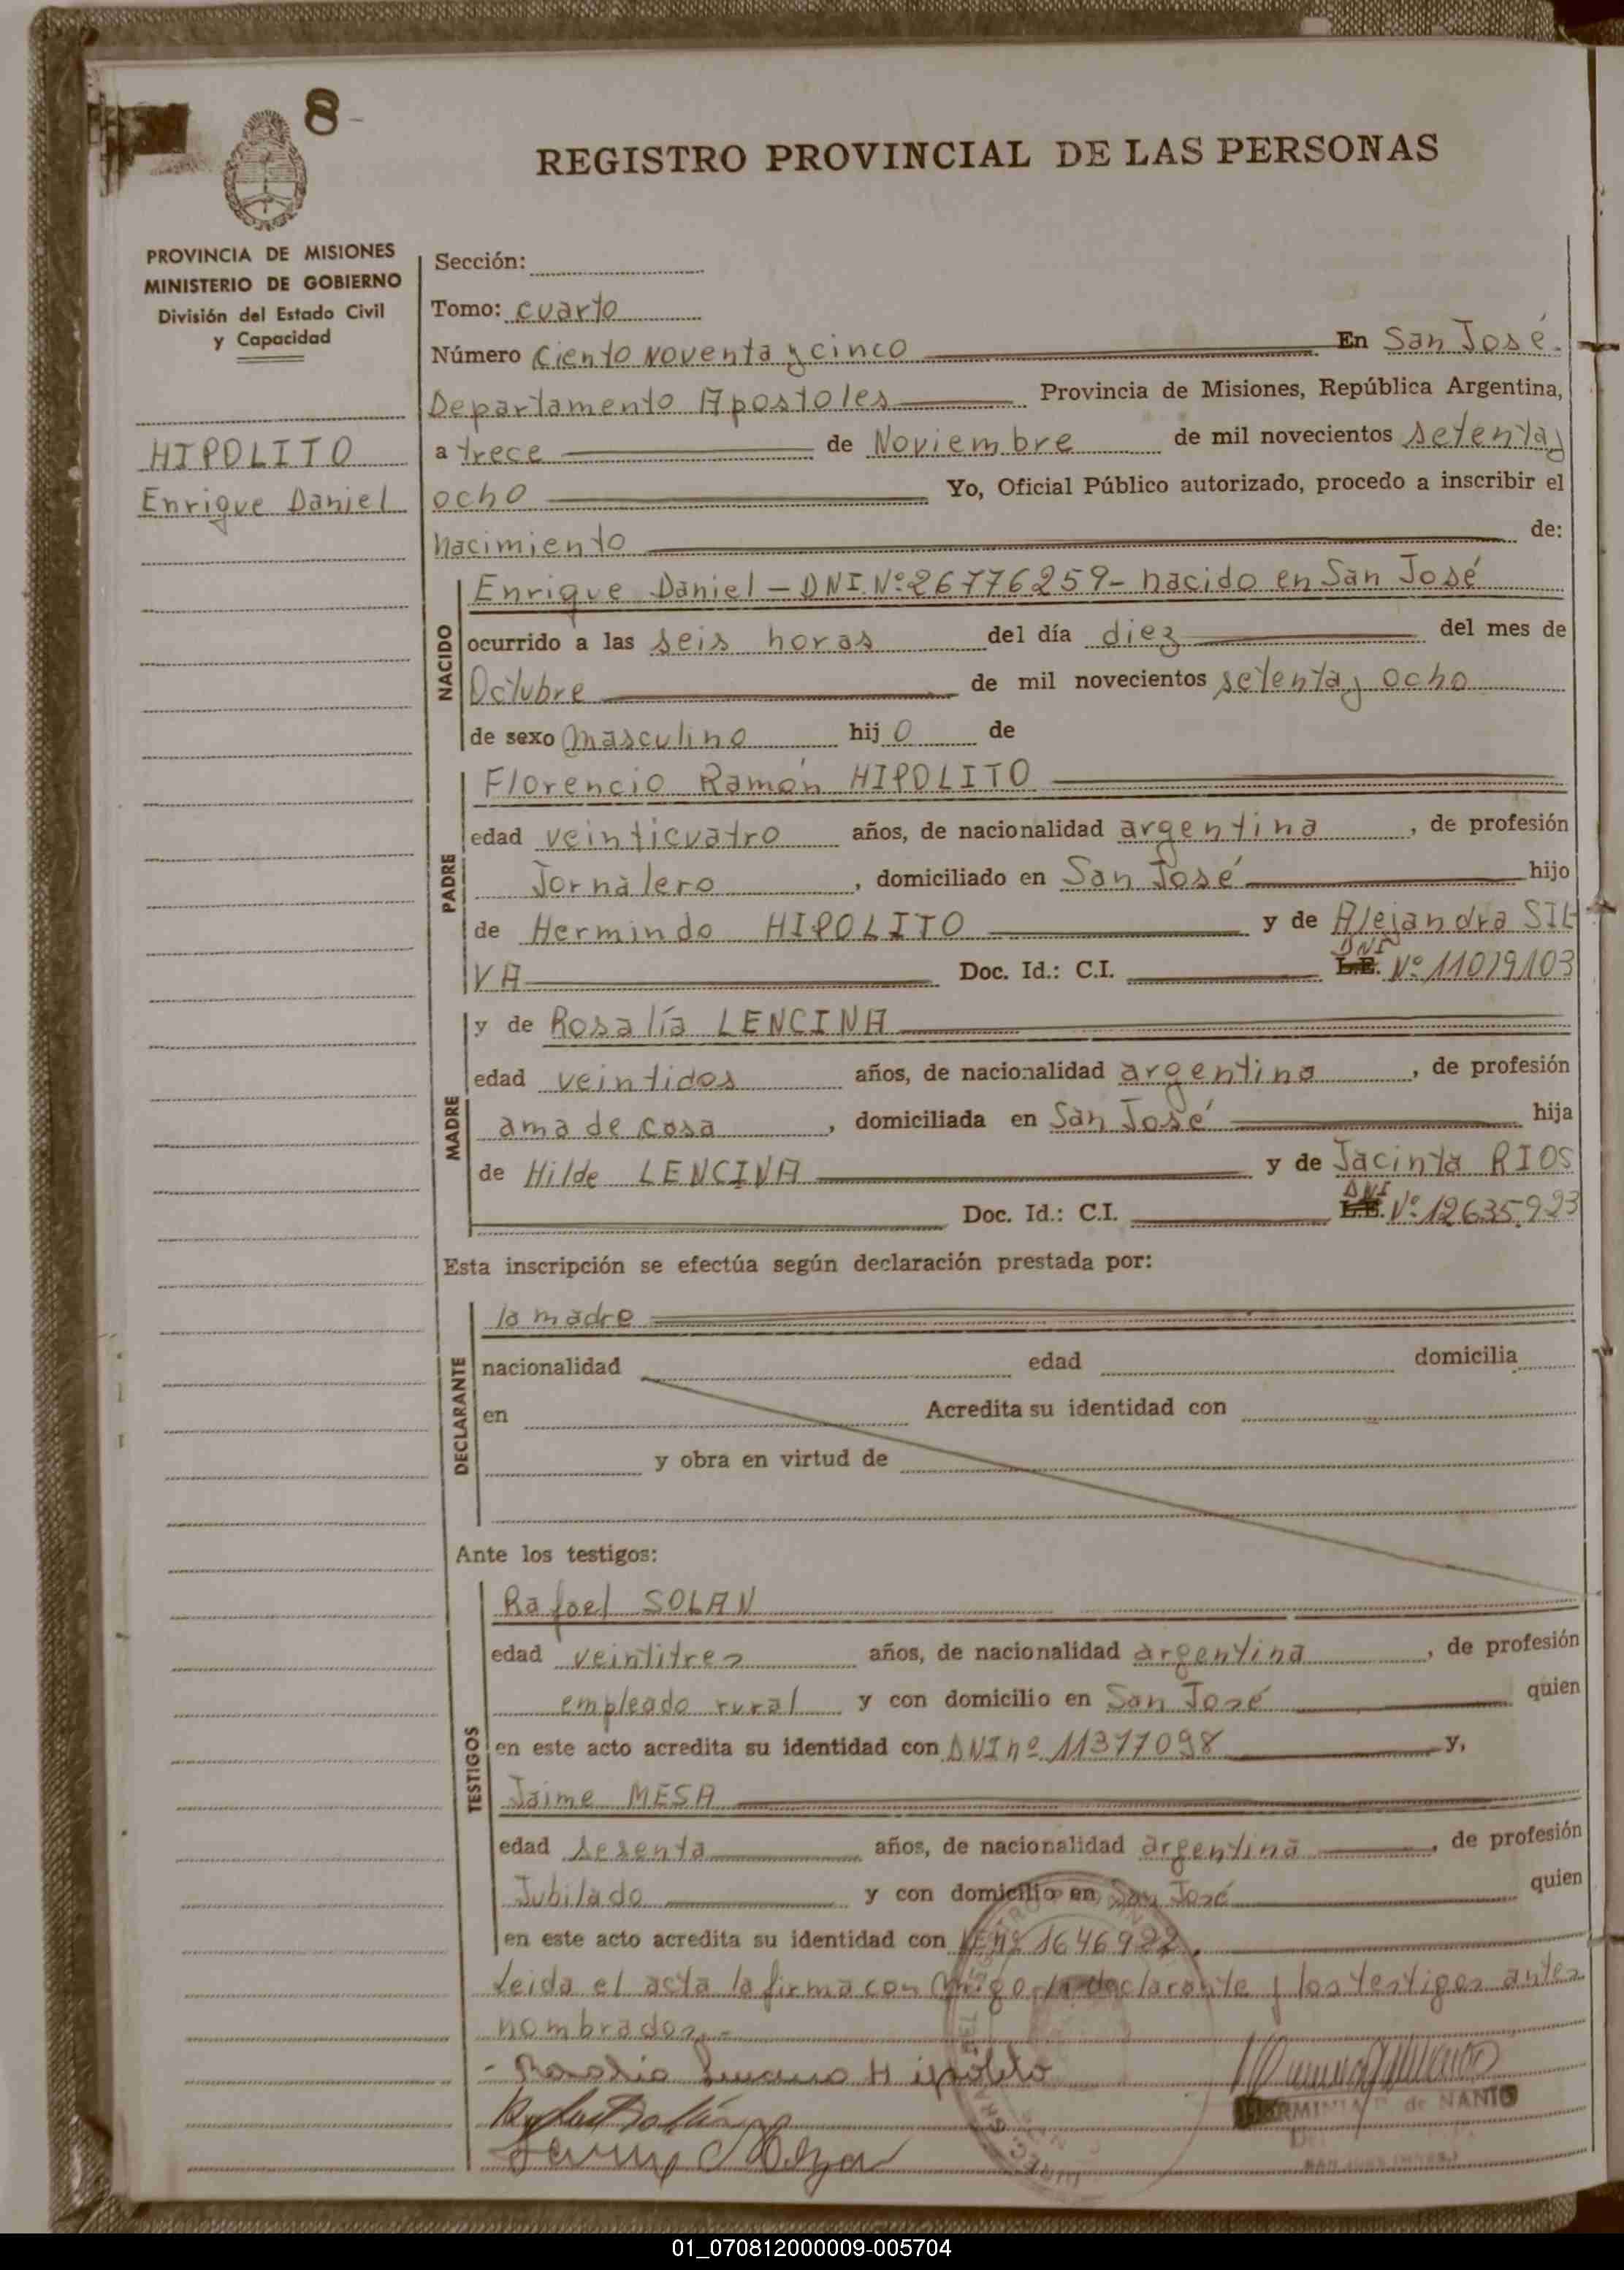 8-
REGISTRO PROVINCIAL DE LAS PERSONAS
PROVINCIA DE MISIONES
MINISTERIO DE GOBIERNO
División del Estado Civil
y Capacidad
HIPOLITO
Enrique Daniel
Sección:
Tomo: cuarto
Número Ciento Noventa y cinco En San José.
Departamento Apostoles Provincia de Misiones, República Argentina,
a trece de Noviembre de mil novecientos setenta y
ocho Yo, Oficial Público autorizado, procedo a inscribir el
nacimiento de:
NACIDO
Enrique Daniel - DNI. Nº 26776259 - nacido en San José
ocurrido a las seis horas del día diez del mes de
Octubre de mil novecientos setenta y ocho
de sexo masculino hijo de
PADRE
Florencio Ramón HIPOLITO
edad veinticuatro años, de nacionalidad argentina, de profesión
Jornalero, domiciliado en San José hijo
de Hermindo HIPOLITO y de Alejandra SIL
VA Doc. Id.: C.I. L.E. DNI Nº 11019103
MADRE
y de Rosalía LENCINA
edad veintidos años, de nacionalidad argentina, de profesión
ama de casa, domiciliada en San José hija
de Hilde LENCINA y de Jacinta RIOS
Doc. Id.: C.I. L.E. DNI Nº 12635923
Esta inscripción se efectúa según declaración prestada por:
DECLARANTE
la madre
nacionalidad edad domicilia
en Acredita su identidad con
y obra en virtud de
Ante los testigos:
TESTIGOS
Rafael SOLAN
edad veintitres años, de nacionalidad argentina, de profesión
empleado rural y con domicilio en San José quien
en este acto acredita su identidad con DNI nº 11377098 y,
Jaime MESA
edad sesenta años, de nacionalidad argentina, de profesión
Jubilado y con domicilio en San José quien
en este acto acredita su identidad con LE nº 1646922.
Leida el acta la firma con migo la declarante y los testigos antes
nombrados.-
- Rosalia Lencina H ipolito
HERMINIA de NANTO
01_070812000009-005704